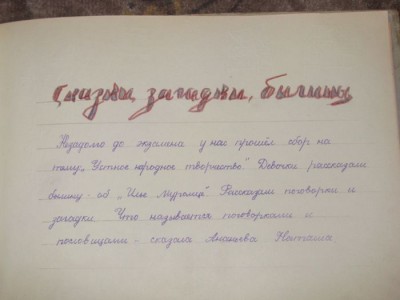 Сказки, загадки, былины
Незадолго до экзамена у нас прошёл сбор на
тему „Устное народное творчество". Девочки рассказали
былину об „Илье Муромце". Рассказали поговорки и
загадки. Что называется поговорками и
пословицами - сказала Ананьева Наташа